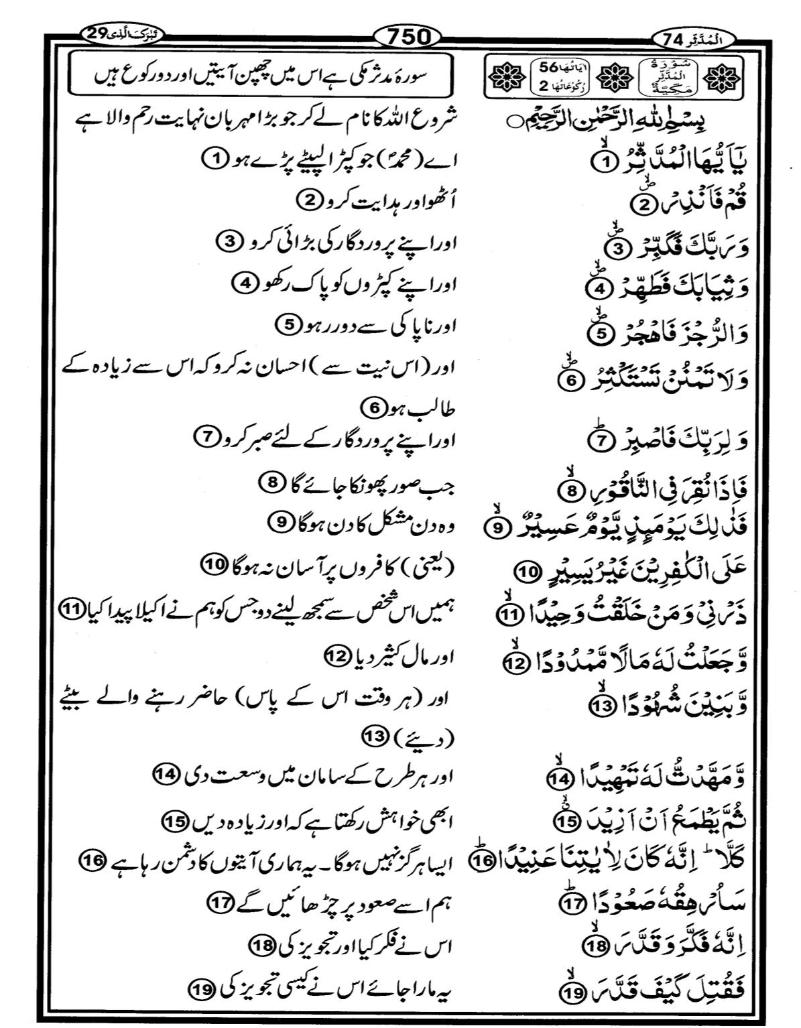 تَبٰرَكَ الَّذِىْ 29
750
اَلْمُدَّثِّر 74
سُوْرَةُ الْمُدَّثِّرِ مَكِّيَّةٌ
اٰيَاتُهَا 56
رُكُوْعَاتُهَا 2
سورۂ مدثر مکی ہے اس میں چھپن آیتیں اور دو رکوع ہیں
بِسْمِ اللهِ الرَّحْمٰنِ الرَّحِيْمِ ○
شروع اللہ کا نام لے کر جو بڑا مہربان نہایت رحم والا ہے
يٰۤاَيُّهَا الْمُدَّثِّرُ ۙ 1
اے (محمدؐ) جو کپڑا لپیٹے پڑے ہو 1
قُمْ فَاَنْذِرْ ۙ 2
اُٹھو اور ہدایت کرو 2
وَرَبَّكَ فَكَبِّرْ ۙ 3
اور اپنے پروردگار کی بڑائی کرو 3
وَثِيَابَكَ فَطَهِّرْ ۙ 4
اور اپنے کپڑوں کو پاک رکھو 4
وَالرُّجْزَ فَاهْجُرْ ۙ 5
اور ناپاکی سے دور رہو 5
وَلَا تَمْنُنْ تَسْتَكْثِرُ ۙ 6
اور (اس نیت سے) احسان نہ کرو کہ اس سے زیادہ کے
طالب ہو 6
وَلِرَبِّكَ فَاصْبِرْ ؕ 7
اور اپنے پروردگار کے لئے صبر کرو 7
فَاِذَا نُقِرَ فِى النَّاقُوْرِ ۙ 8
جب صور پھونکا جائے گا 8
فَذٰلِكَ يَوْمَئِذٍ يَّوْمٌ عَسِيْرٌ ۙ 9
وہ دن مشکل کا دن ہوگا 9
عَلَى الْكٰفِرِيْنَ غَيْرُ يَسِيْرٍ 10
(یعنی) کافروں پر آسان نہ ہوگا 10
ذَرْنِىْ وَمَنْ خَلَقْتُ وَحِيْدًا ۙ 11
ہمیں اس شخص سے سمجھ لینے دو جس کو ہم نے اکیلا پیدا کیا 11
وَّجَعَلْتُ لَهٗ مَالًا مَّمْدُوْدًا ۙ 12
اور مال کثیر دیا 12
وَّبَنِيْنَ شُهُوْدًا ۙ 13
اور (ہر وقت اس کے پاس) حاضر رہنے والے بیٹے
(دیئے) 13
وَّمَهَّدْتُّ لَهٗ تَمْهِيْدًا ۙ 14
اور ہر طرح کے سامان میں وسعت دی 14
ثُمَّ يَطْمَعُ اَنْ اَزِيْدَ ۙ 15
ابھی خواہش رکھتا ہے کہ اور زیادہ دیں 15
كَلَّا ؕ اِنَّهٗ كَانَ لِاٰيٰتِنَا عَنِيْدًا ؕ 16
ایسا ہرگز نہیں ہوگا۔ یہ ہماری آیتوں کا دشمن رہا ہے 16
سَاُرْهِقُهٗ صَعُوْدًا ؕ 17
ہم اسے صعود پر چڑھائیں گے 17
اِنَّهٗ فَكَّرَ وَقَدَّرَ ۙ 18
اس نے فکر کیا اور تجویز کی 18
فَقُتِلَ كَيْفَ قَدَّرَ ۙ 19
یہ مارا جائے اس نے کیسی تجویز کی 19